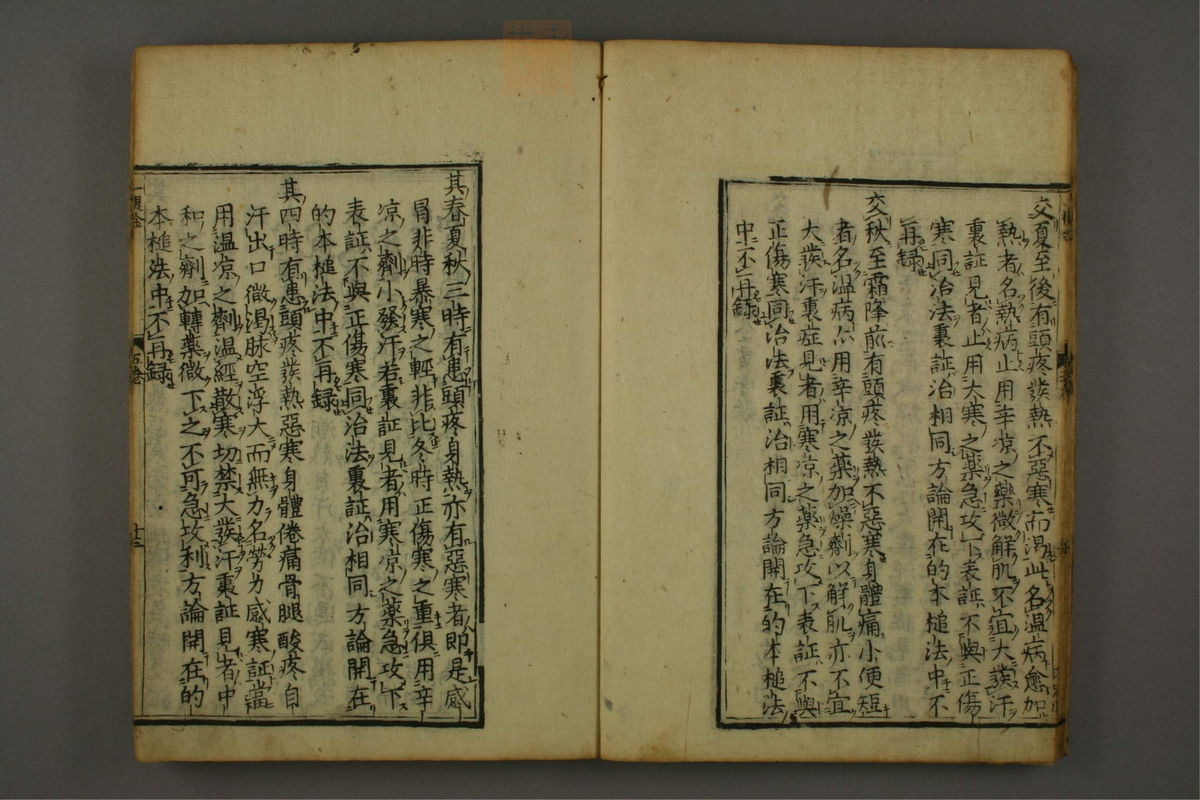 交夏至後有頭疼發熱不惡寒而渴此名温病愈加
熱者名熱病止用辛凉之藥微解肌不宜大發汗
裏証見者止用大寒之薬急攻下表証不與正傷
寒同治法裏証治相同方論開在的本槌法中不
再録
交秋至霜降前有頭疼發熱不惡寒身體痛小便短
者名温病亦用辛凉之薬加燥劑以解肌亦不宜
大發汗裏症見者用寒凉之薬急攻下表証不與
正傷寒同治法裏証治相同方論開在的本槌法
中不再録
其春夏秋三時有患頭疼身熱亦有惡寒者即是感
冒非時暴寒之輕非比冬時正傷寒之重俱用辛
凉之劑小發汗若裏証見者用寒凉之薬急攻下
表証不與正傷寒同治法裏証治相同方論開在
的本槌法中不再録
其四時有患頭疼發熱惡寒身體倦痛骨腿酸疼自
汗出口微渇脉空浮大而無力名勞力感寒証當
用温凉之劑温經散寒切禁大發汗裏証見者中
和之劑加轉薬微下之不可急攻利方論開在的
本槌法中不再録